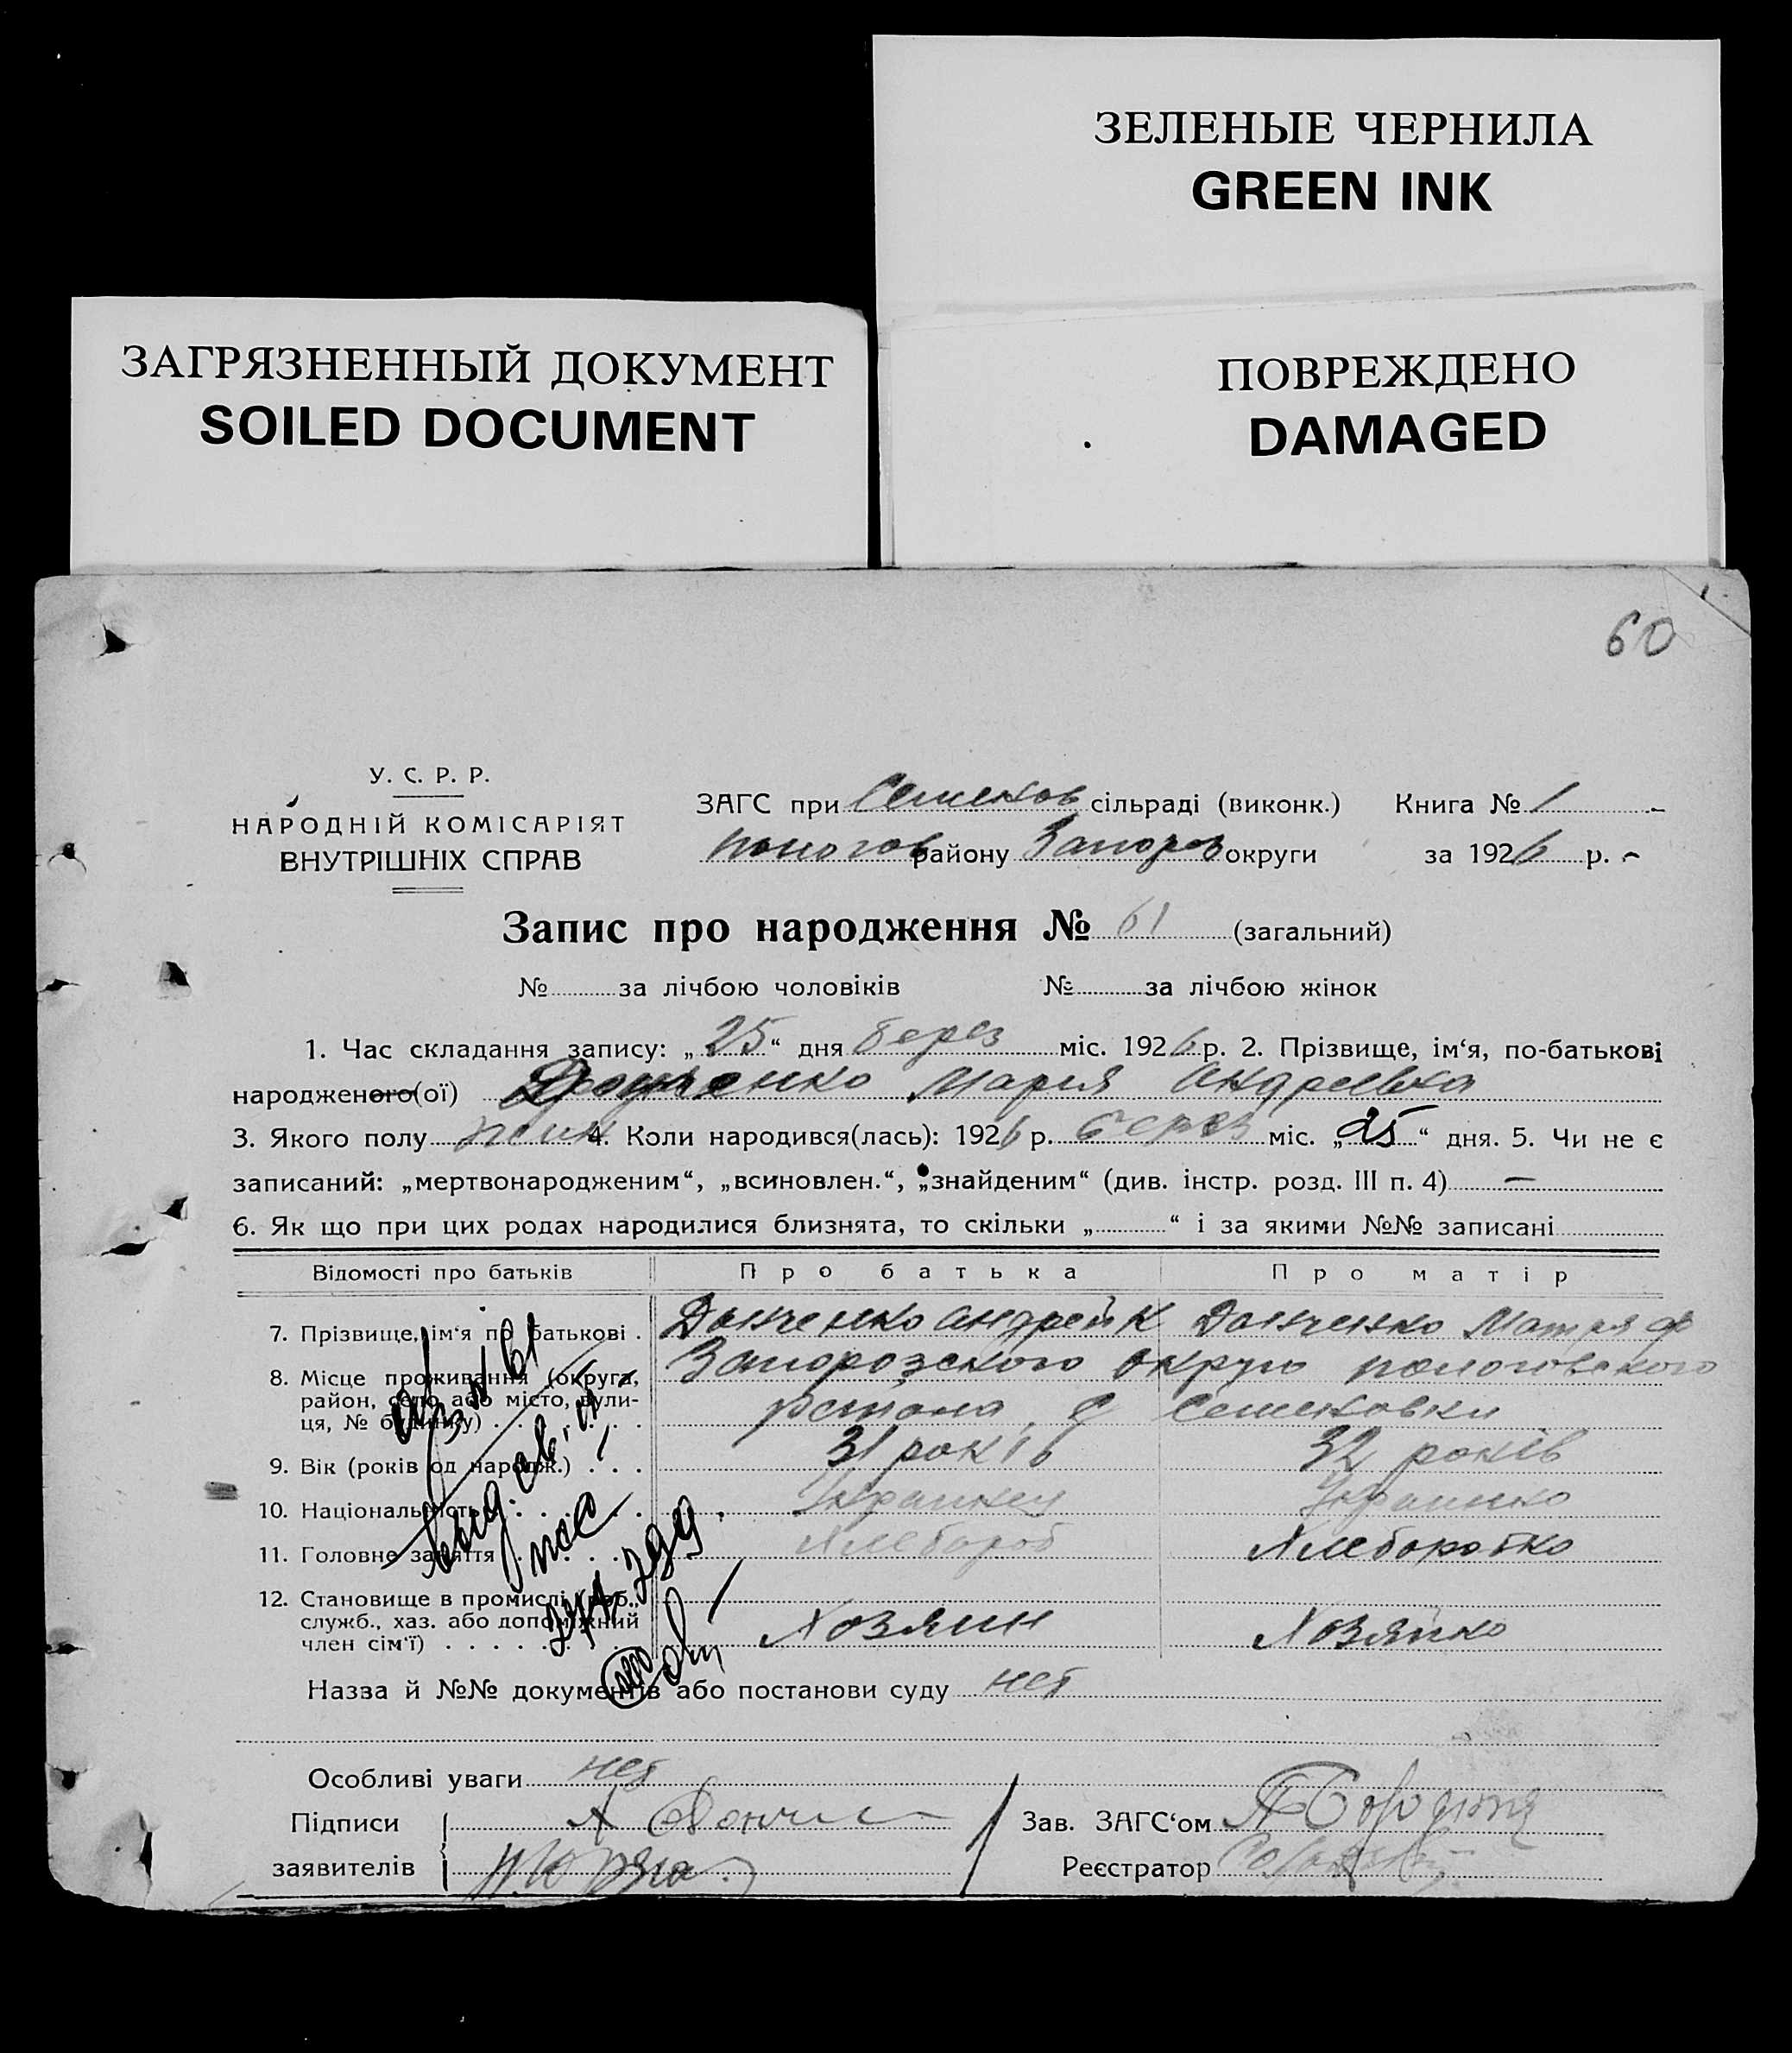 ЗЕЛЕНЫЕ ЧЕРНИЛА
GREEN INK
ЗАГРЯЗНЕННЫЙ ДОКУМЕНТ
SOILED DOCUMENT
ПОВРЕЖДЕНО
DAMAGED
60
У. С. Р. Р.
НАРОДНІЙ КОМІСАРІЯТ
ВНУТРІШНІХ СПРАВ
ЗАГС при Семенов сільраді (виконк.) Книга № 1
пологов району Запороз округи за 1926 р.
Запис про народження № 61 (загальний)
№ за лічбою чоловіків № за лічбою жінок
1. Час складання запису: „25“ дня берез міс. 1926 р. 2. Прізвище, ім‘я, по-батькові
народженого(ої) Донченко Мария Андреевна
3. Якого полу жин 4. Коли народився(лась): 1926 р. берез міс. „25“ дня. 5. Чи не є
записаний: „мертвонародженим“, „всиновлен.“, „знайденим“ (див. інстр. розд. III п. 4) —
6. Як що при цих родах народилися близнята, то скільки „ “ і за якими №№ записані
Відомості про батьків Про батька Про матір
7. Прізвище, ім‘я по батькові . Донченко Андрей К Донченко Матря Ф
8. Місце проживання (округа, район, село або місто, вулиця, № будинку) Запорозского округу пологовского
району с Семеновки
9. Вік (років од народж.) . . . 31 років 32 років
10. Національність Украинец Украинко
11. Головне заняття Хлебороб Хлеборобко
12. Становище в промислі (роб.,
служб., хаз. або допоміжний
член сім‘ї) Хозяин Хозяйко
№ 61
Назва й №№ документів або постанови суду нет
Особливі уваги нет
Підписи А Донч
заявителів
Зав. ЗАГС‘ом
Реєстратор